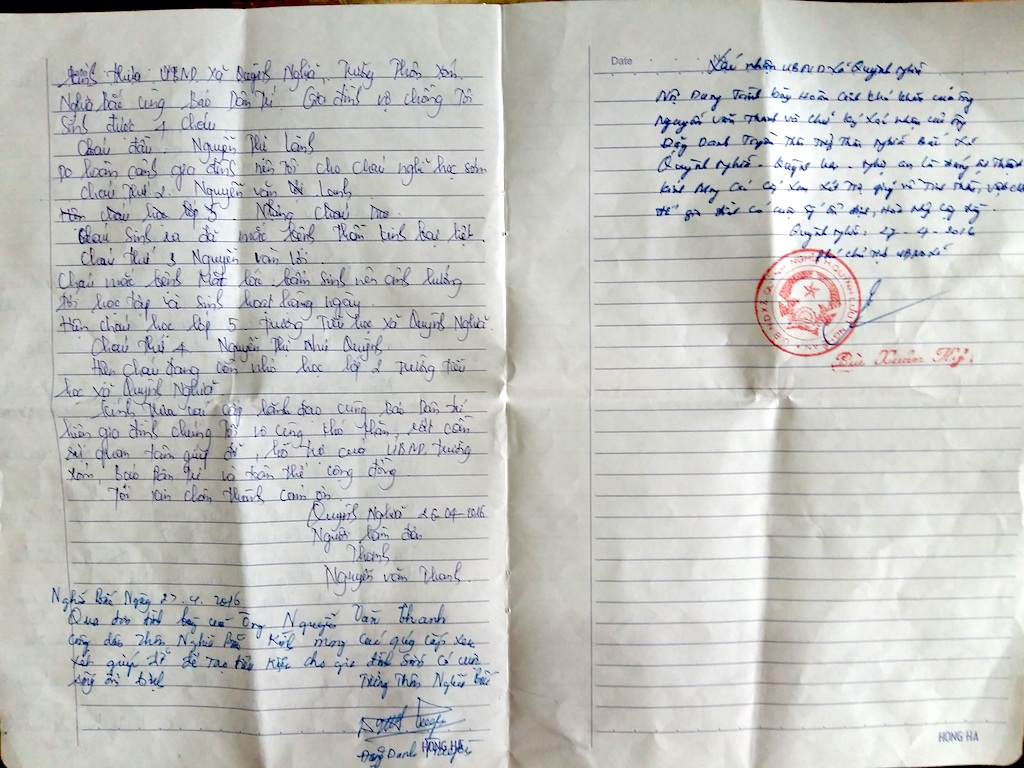 Kính thưa UBND xã Quỳnh Nghĩa, Trưởng Thôn xóm
Nghĩa Bắc cùng Báo Dân Trí. Gia đình vợ chồng Tôi
Sinh được 4 cháu
Cháu đầu. Nguyễn Thị Lành
Do hoàn cảnh gia đình nên tôi cho cháu nghỉ học sớm
Cháu Thứ 2. Nguyễn văn Lanh
Hiện cháu học lớp 5. Nhưng cháu
Cháu Sinh ra đã mắc bệnh Thần kinh bại liệt.
Cháu thứ 3 Nguyễn văn Lời.
Cháu mắc bệnh Mắt bẩm sinh nên ảnh hưởng
tới học tập và sinh hoạt hằng ngày
Hiện cháu học lớp 5. trường Tiểu học xã Quỳnh Nghĩa.
Cháu Thứ 4 Nguyễn Thị Như Quỳnh
Hiện cháu đang còn nhỏ học lớp 2 trường tiểu
học xã Quỳnh Nghĩa
Kính thưa các cấp lãnh đạo cùng báo Dân trí
hiện gia đình chúng Tôi vô cùng khó khăn, rất cần
sự quan tâm giúp đỡ, hỗ trợ của UBND, trưởng
xóm, Báo Dân Trí và toàn thể cộng đồng
Tôi xin chân thành cảm ơn.
Quỳnh Nghĩa 26-04-2016
Người làm đơn
Thanh
Nguyễn văn Thanh.
Nghĩa Bắc Ngày 27.4.2016
Qua đơn trình bày của Ông Nguyễn Văn Thanh
Công dân Thôn Nghĩa Bắc Kính mong các cấp xem
xét giúp đỡ để Tạo điều kiện cho gia đình Sớm có cuộc
sống ổn định Trưởng Thôn Nghĩa Bắc
Đặng Danh
HONG HA
Date
Xác nhận UBND xã Quỳnh Nghĩa
Nội Dung Trình bày Hoàn Cảnh khó khăn của Ông
Nguyễn Văn Thanh và chữ ký xác nhận của Ông
Đặng Danh Tuyên Thôn Trưởng Thôn Nghĩa Bắc Xã
Quỳnh Nghĩa - Quỳnh Lưu - Nghệ An là đúng sự Thật
Kính Mong Các Cấp Xem Xét Trợ giúp về Tinh Thần, vật chất
để gia đình có cuộc
Quỳnh Nghĩa. 27-4-2016
Phó chủ tịch UBND xã
Bùi Xuân Mỹ
HONG HA